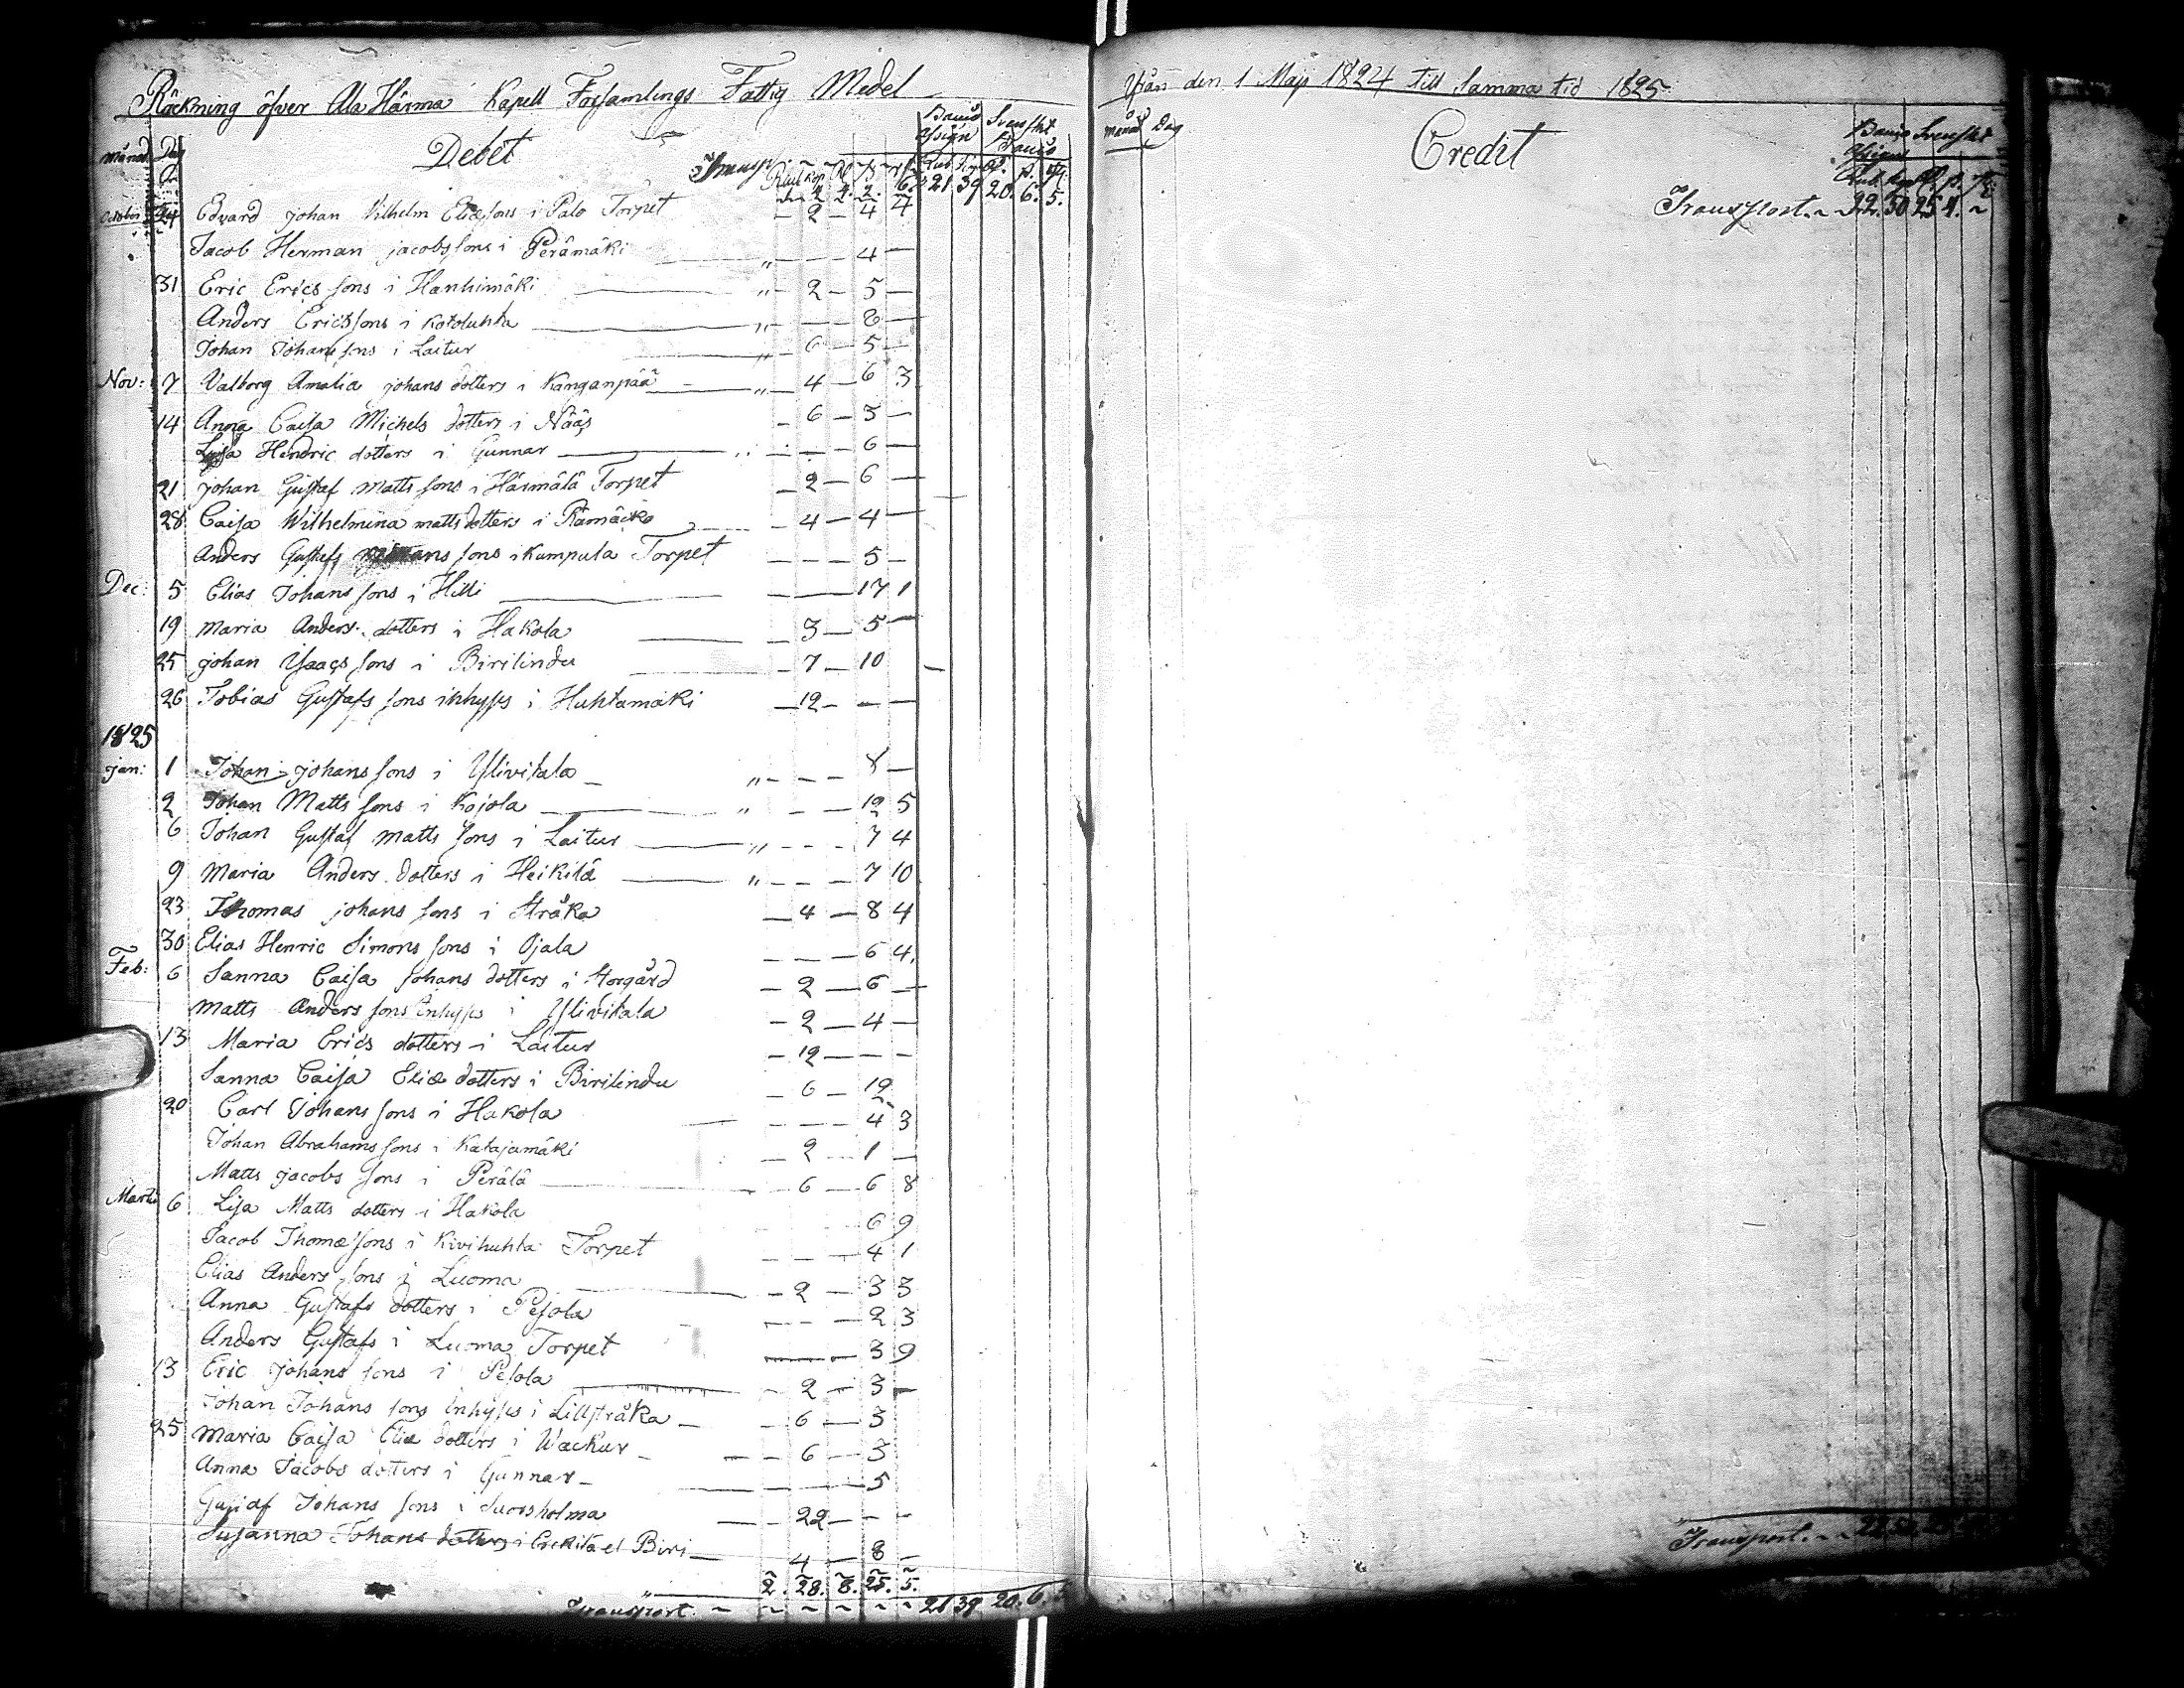 Räckning öfver Ala Härma Kapell Församlings Fattig Medel
Månad Dag Debet Banco Assign Svenskt Banco
Rub. kop. R. s. r. Rub. kop. R. s. r.
Transp. 2. 2. 6. 21 39 20. 6. 5.
October 24 Edvard Johan Vilhelm Eliæsons i Palo Torpet — 2 — 4 4
Jacob Herman jacobs sons i Perämäki „ — — — 4 —
31 Eric Erics sons i Hanhimäki „ — 2 — 5 —
Anders Erics sons i Kotoluhta „ — — — 8 —
Johan Johans sons i Laitur „ — 6 — 5 —
Nov: 7 Valborg Amalia johans dotters i Kanganpää „ — 4 — 6 3
14 Anna Caisa Michels dotters i Nääs — 6 — 3 —
Lisa Hendric dotters i Gunnar „ — — — 6 —
21 johan Gustaf Matts sons i Härmälä Torpet — 2 — 6 —
28 Caisa Wilhelmina matts dotters i Rämäcko — 4 — 4 —
Anders Gustafs sons i Kumpula Torpet — — — 5 —
Dec: 5 Elias Johans sons i Hilli — — 17 1
19 Maria Anders dotters i Hakola — 3 — 5 —
25 johan Isaacs sons i Birilindu — 7 — 10 —
26 Tobias Gustafs sons inhyses i Huhtamäki — 12 — — —
1825
jan: 1 Johan johans sons i Ylivitala „ — — — 8 —
2 Johan Matts sons i Kojola „ — — — 12 5
6 Johan Gustaf matts sons i Laitur „ — — — 7 4
9 Maria Anders dotters i Heikilä „ — — — 7 10
23 Thomas johans sons i Stråka — 4 — 8 4
30 Elias Henric Simons sons i Ojala — — — 6 4.
Feb: 6 Sanna Caisa Johans dotters i Storgård — 2 — 6 —
Matts Anders sons Inhyses i Ylivitala — 2 — 4 —
13 Maria Erics dotters i Laitur — 12 — — —
Sanna Caisa Eliæ dotters i Birilindu — 6 — 12
20 Carl Johans sons i Hakola — — — 4 3
Johan Abrahams sons i Katajamäki — 2 — 1 —
Matts jacobs sons i Perälä — 6 — 6 8
Martii 6 Lisa Matts dotters i Hakola 6 9
Jacob Thomæ sons i Kivihuhta Torpet — — — 4 1
Elias Anders sons i Luoma — 2 — 3 3
Anna Gustafs dotters i Pesola — — — 2 3
Anders Gustafs i Luoma Torpet — — 3 9
13 Eric johans sons i Pesola — 2 — 3 —
Johan Johans sons Inhyses i Lillstråka — — 6 — 3
25 Maria Caisa Eliæ dotters i Wackur — — 6 — 3
Anna Jacobs dotters i Gunnar — — — — 5
Gustaf Johans sons i Suorsholma — 22 — — —
Susanna Johans dotters i Biri — 4 — 8 —
2. 28. 8. 25. 5.
Transport. ~ ~ ~ ~ ~ ~ 21 39 20. 6.
Ifrån den 1 Maji 1824 till samma tid 1825.
Månad Dag Credit Banco Assign Svenskt
Transport. ~ 22. 50 25 4. ~
Transport. ~